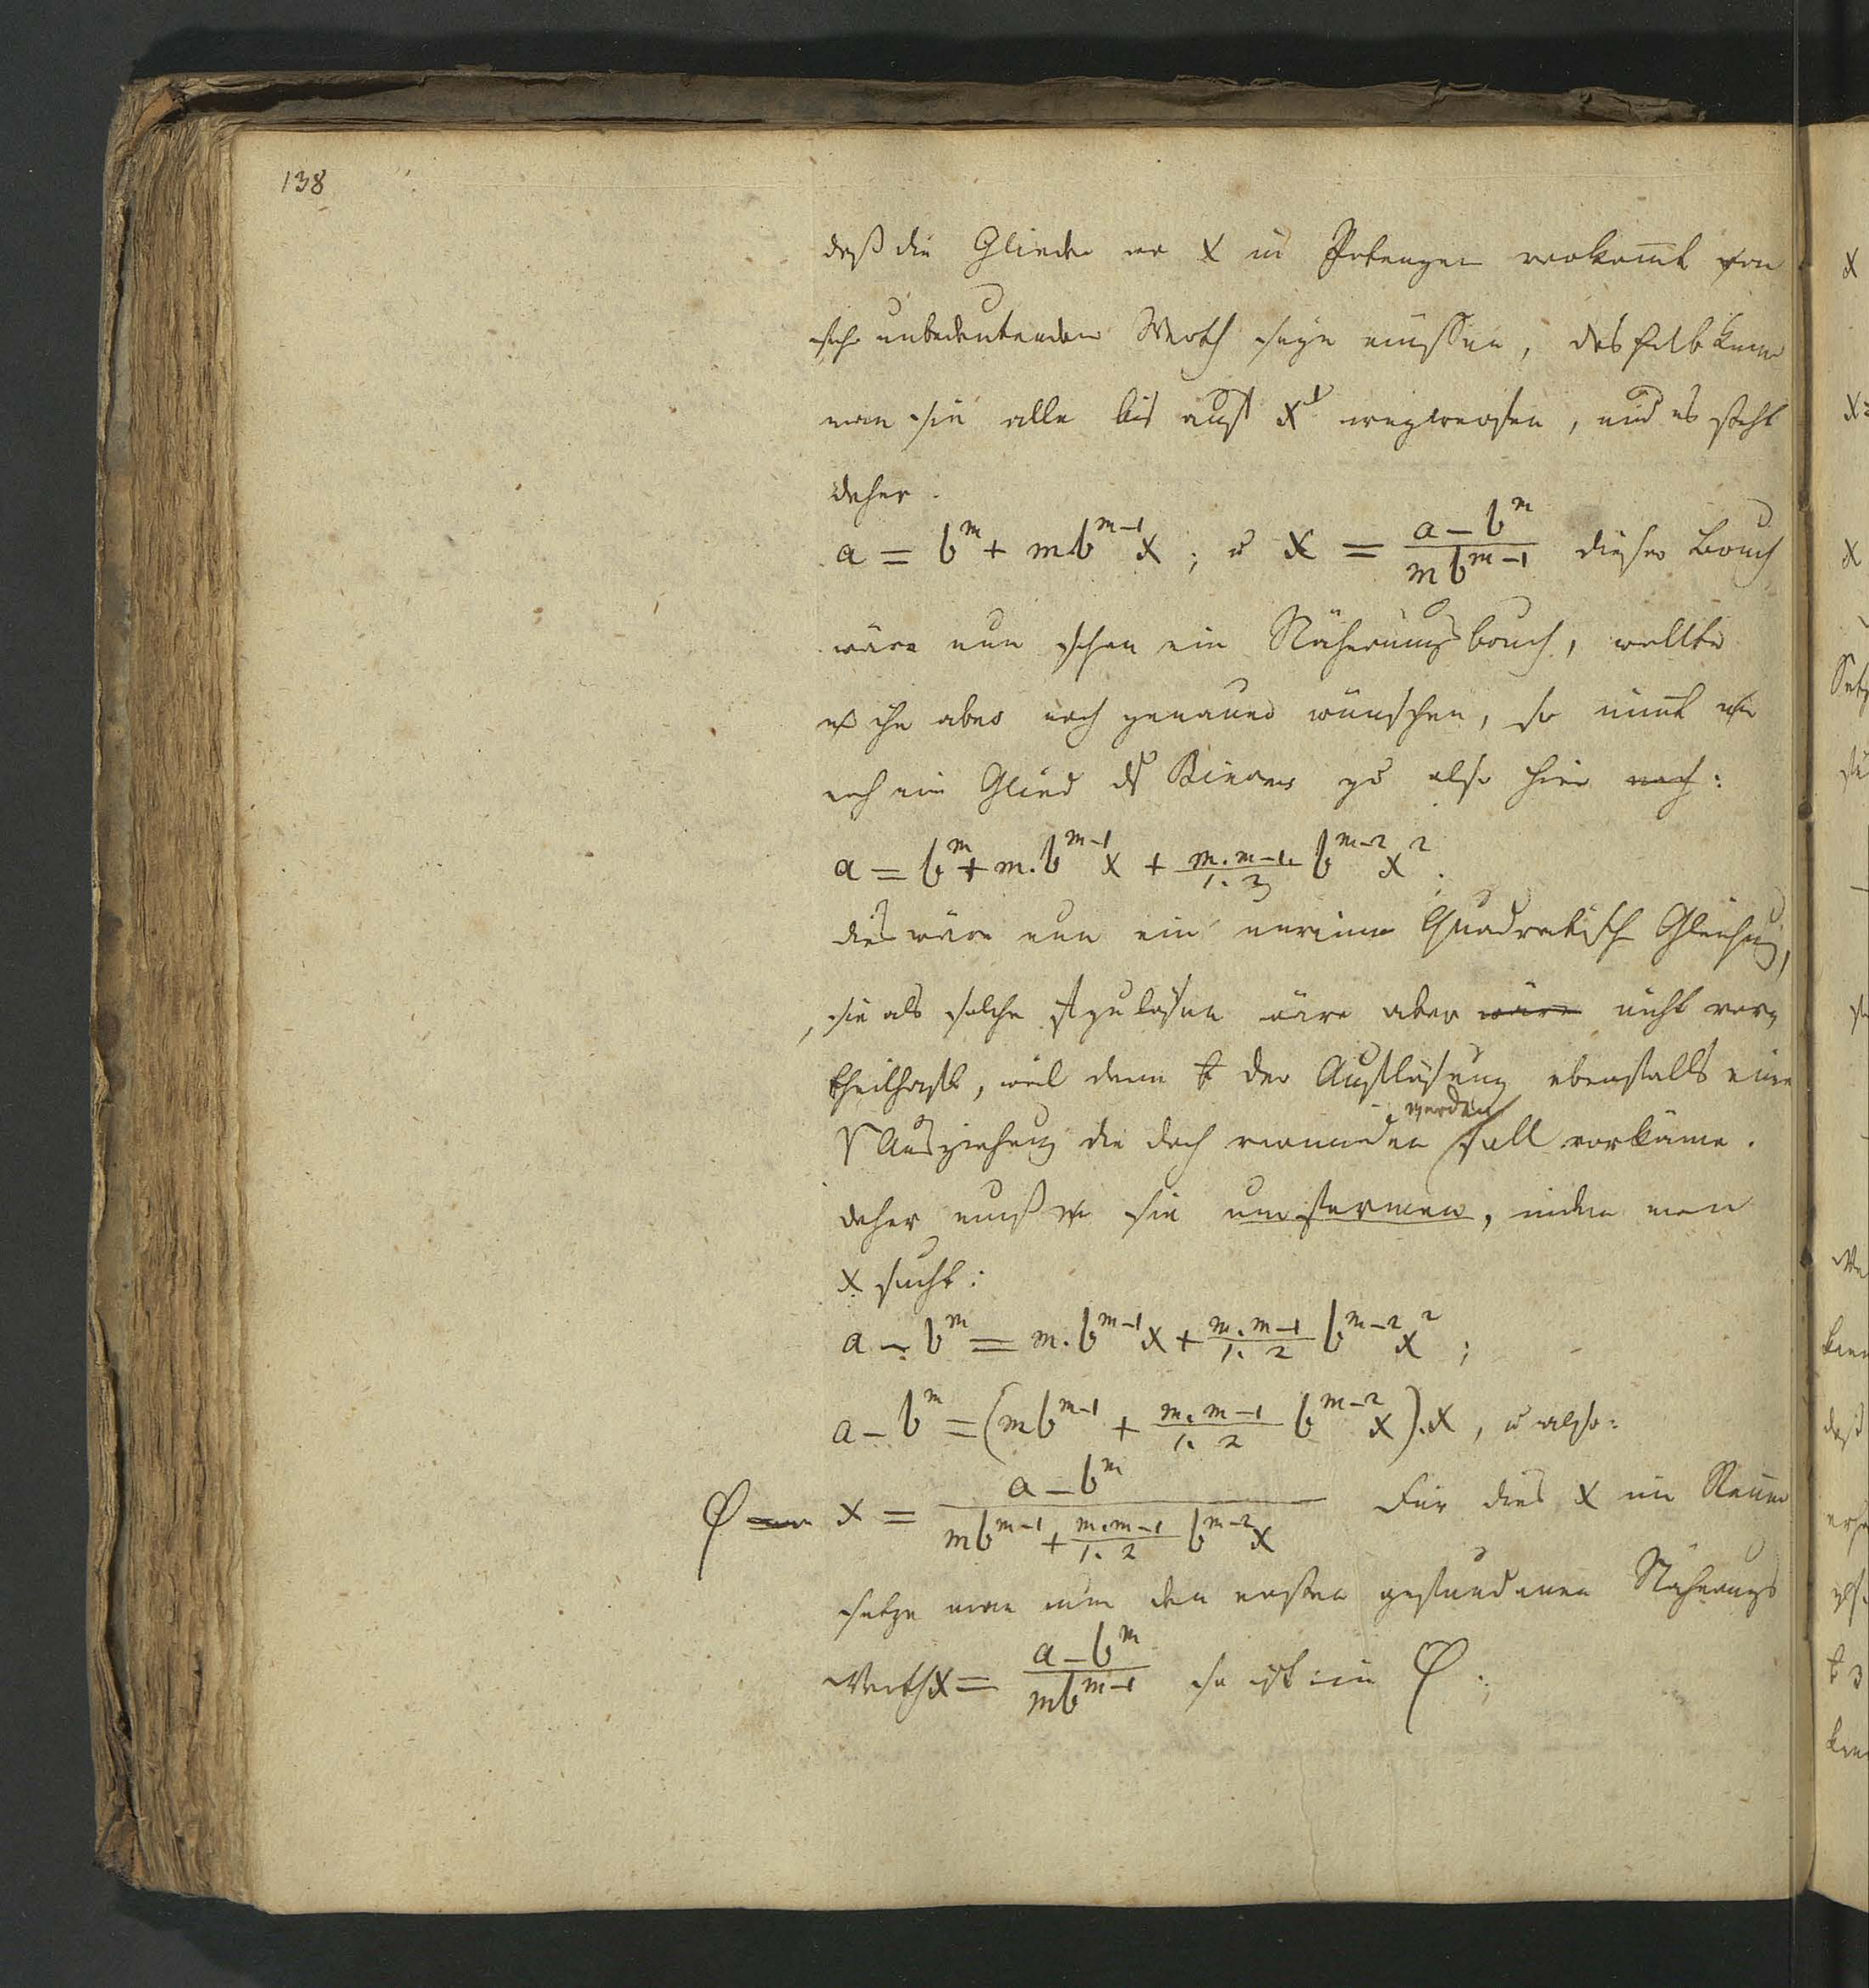 138
daß die Glieder wo x in Potenzen vorkom̄t von
sehr unbedeutendem Werth seyn müssen, deshalb kann
man sie alle bis auf x¹ wegwerfen, und es steht
daher.
a = b^m + mb^{m-1}x; u x = \frac{a-b^m}{mb^{m-1}} dieser Bruch
wäre nun schon ein Näherungsbruch, wollte
ihn aber noch genauer wünschen, so nim̄t
noch ein Glied Binoms zu also hier noch:
a = b^m + m.b^{m-1}x + \frac{m.m-1.}{1.2} b^{m-2}x^2.
dies wäre nun eine unreine Quadratische Gleichung,
sie als solche aufzulösen wäre aber wäre nicht vor,
theilhaft, weil dann b der Auflösung ebenfalls eine
√ Ausziehung die doch vermieden werden soll vorkäme.
daher muß sie umformen, indem man
x sucht:
a - b^m = m.b^{m-1}x + \frac{m.m-1}{1.2} b^{m-2}x^2;
a - b^m = (mb^{m-1} + \frac{m.m-1}{1.2} b^{m-2}x).x, u also:
φ x = \frac{a-b^m}{mb^{m-1} + \frac{m.m-1}{1.2} b^{m-2}x} Für dies x im Nenner
setze man nun den ersten gefundenen Näherungs
Werth x = \frac{a-b^m}{mb^{m-1}} so ist in φ.;